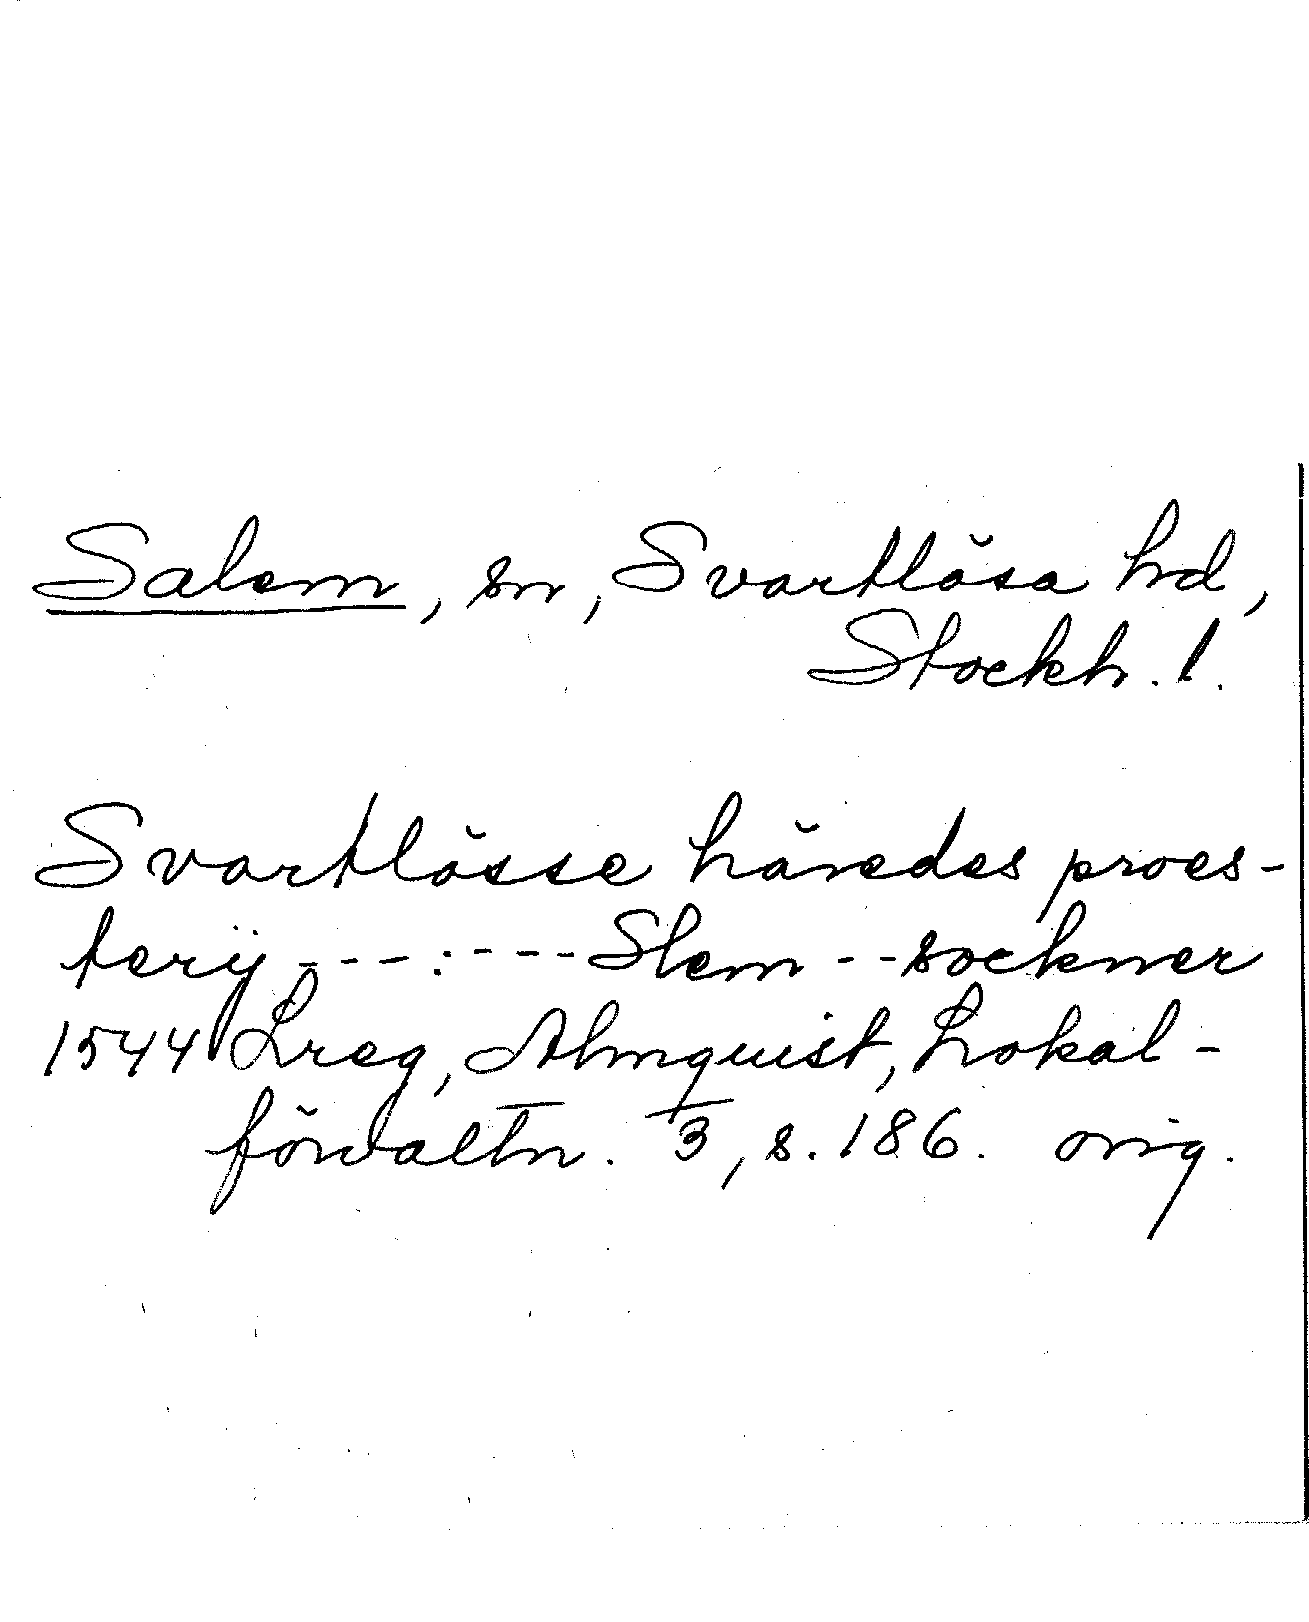 Salem, sn, Svartlösa hd,
Stockh. l.
Svartlösse häredes proes-
terÿ ---:---Slem--sockner
1544 Lreg, Almquist, Lokal-
förvaltn. 3, s. 186. orig.